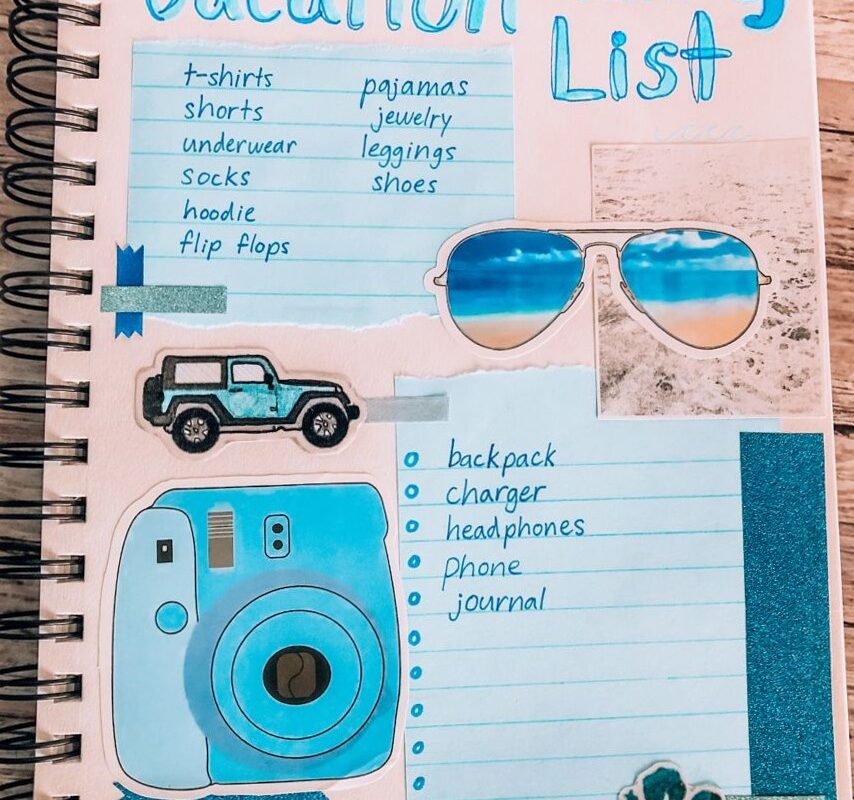 Vacation
List
t-shirts
shorts
underwear
socks
hoodie
flip flops
pajamas
jewelry
leggings
shoes
backpack
charger
headphones
phone
journal